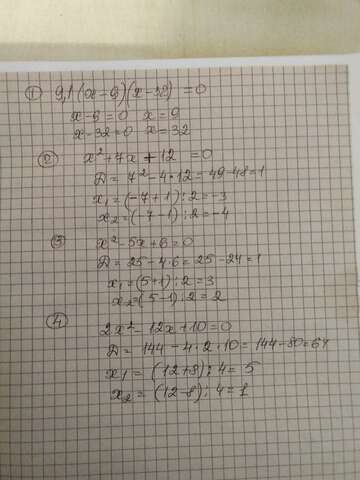 ① 9,1(x-9)(x-32) = 0
x-9=0 x=9
x-32=0 x=32
② x²+7x+12 = 0
D = 7²-4·12=49-48=1
x₁=(-7+1):2=-3
x₂=(-7-1):2=-4
③ x²-5x+6=0
D=25-4·6=25-24=1
x₁=(5+1):2=3
x₂=(5-1):2=2
④
2x²-12x+10=0
D=144-4·2·10=144-80=64
x₁=(12+8):4=5
x₂=(12-8):4=1